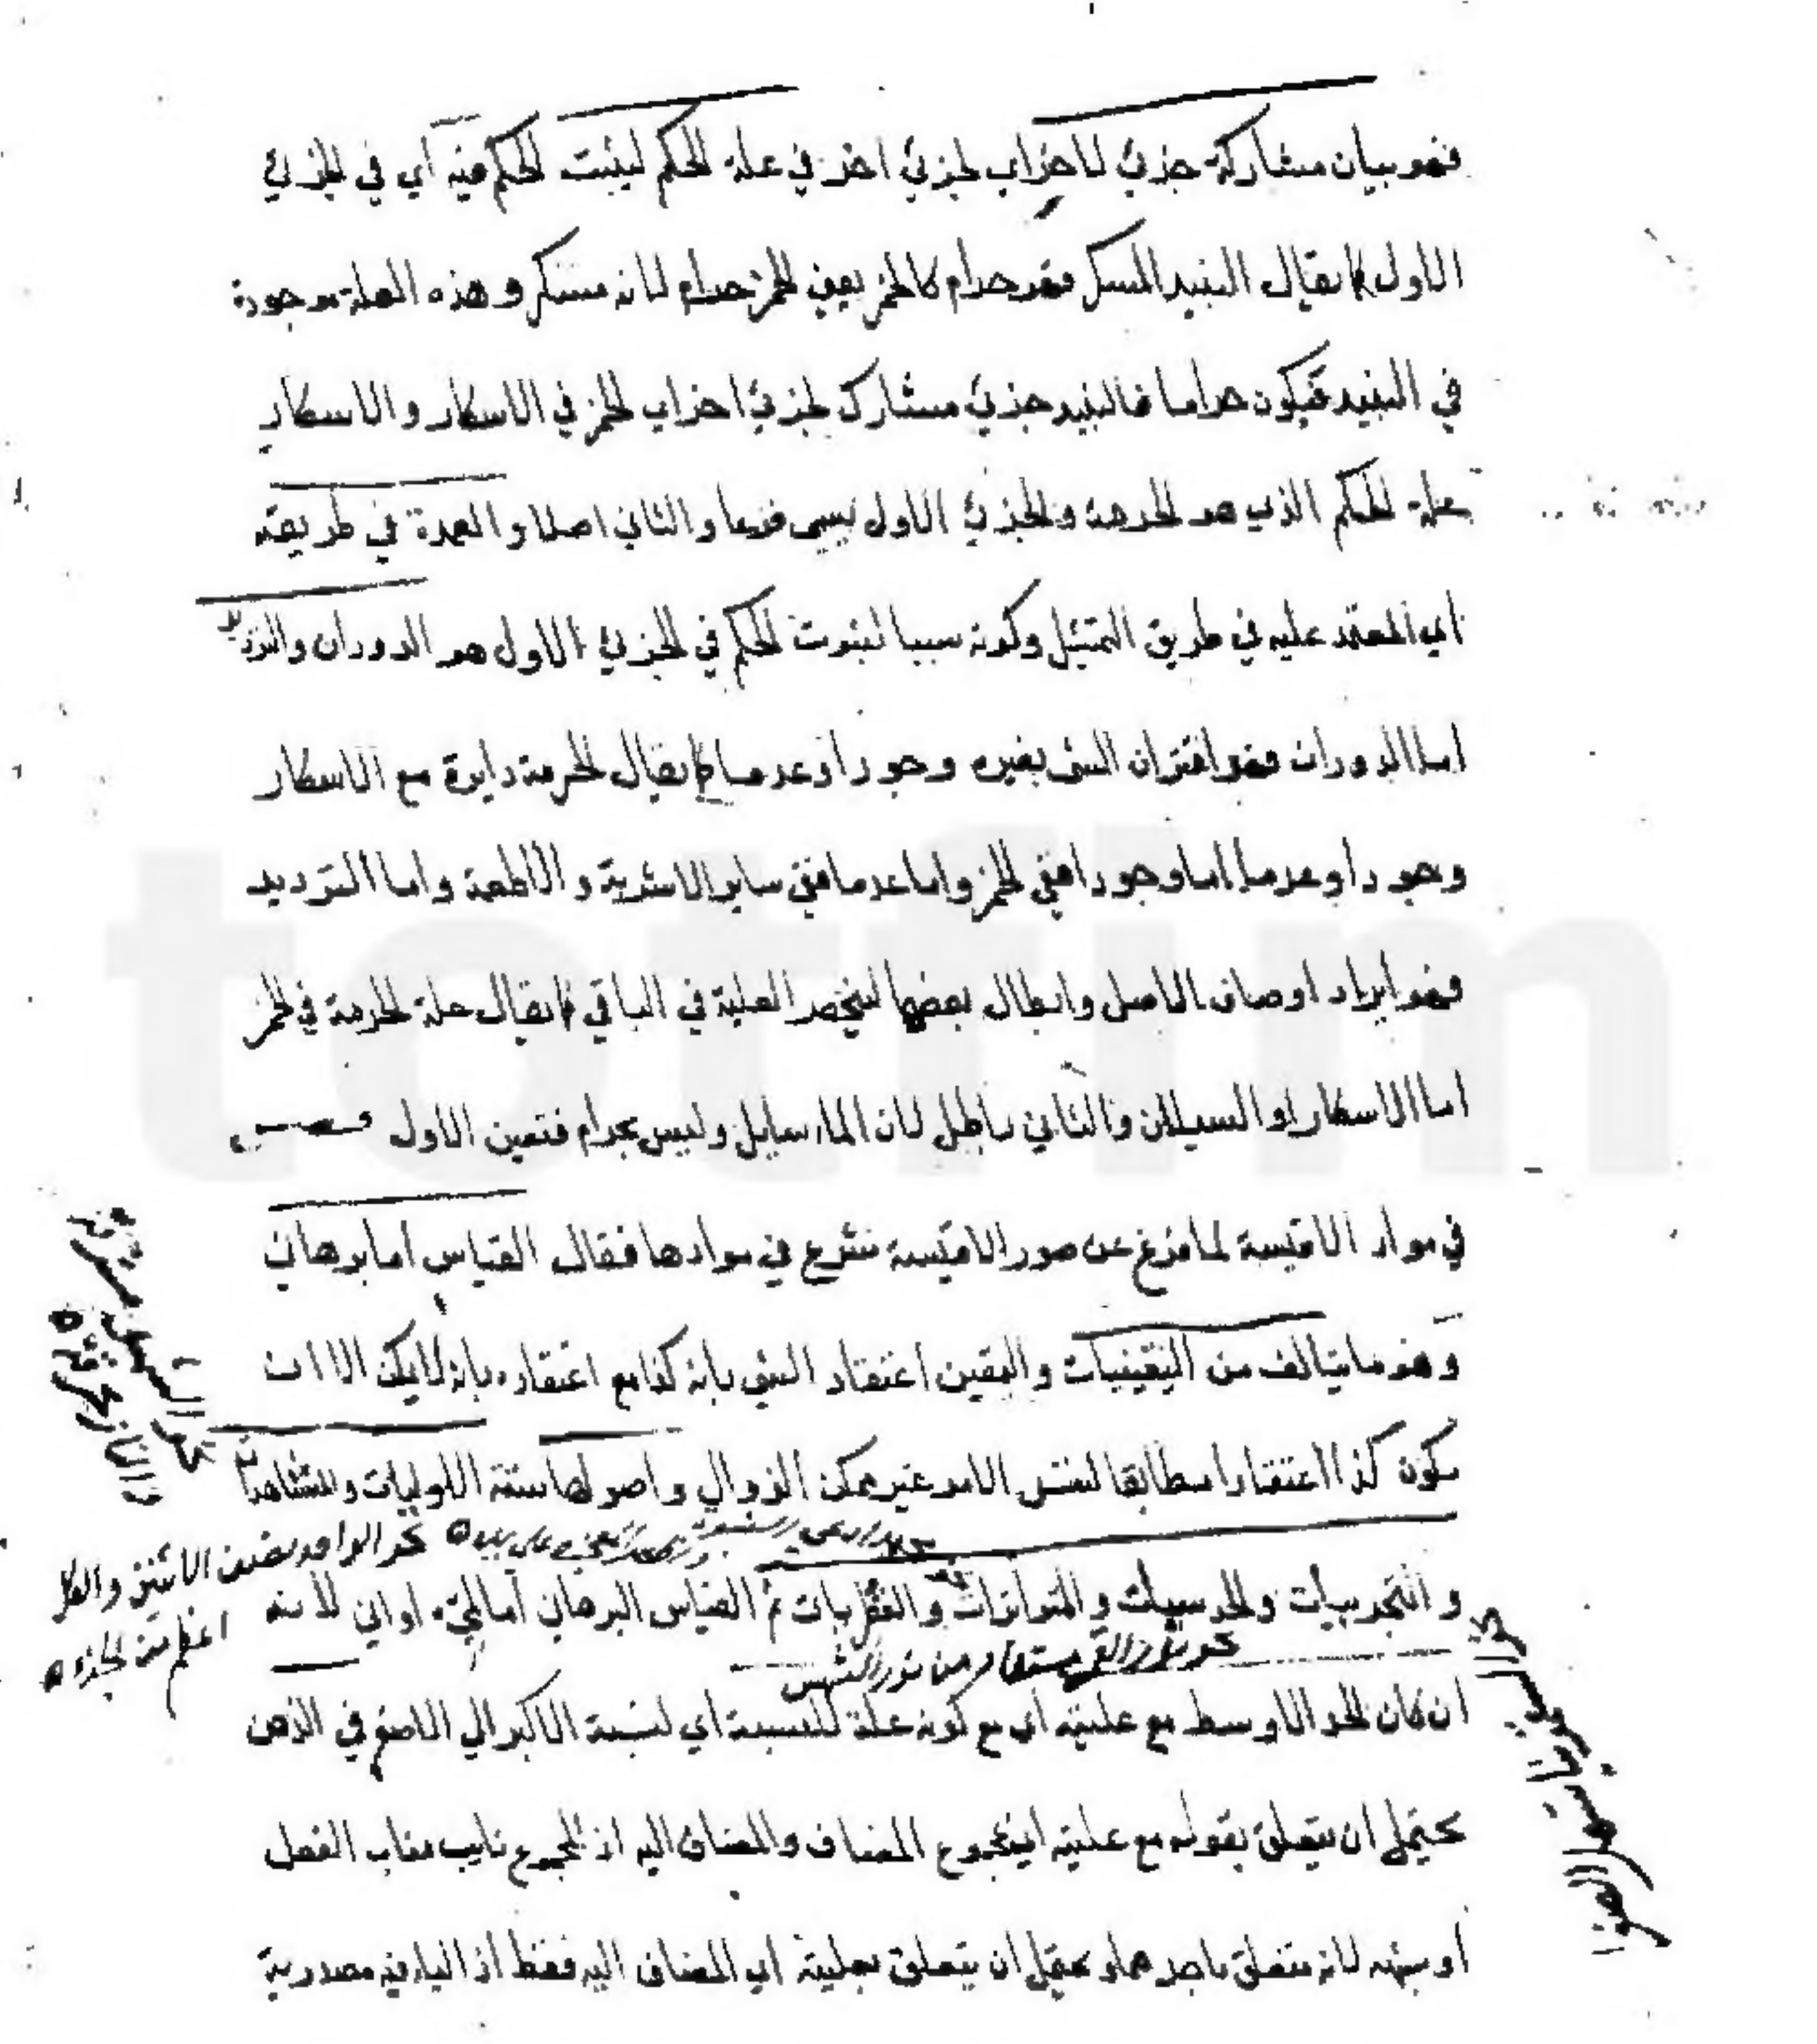 فهو بيان مشاركة جزئ لاخر اي لجزئ اخر في علة الحكم ليثبت الحكم فيه اي في الجزئ
الاول كما يقال النبيذ المسكر فهو حرام كالخمر يعني الخمر حرام لانه مسكر وهذه العلة موجودة
في النبيذ فيكون حراما فالنبيذ جزئ مشارك لجزئ اخر اي الخمر في الاسكار والاسكار
علة الحكم الذي هو الحرمة والجزئ الاول يسمى فرعا والثاني اصلا والعمدة في طريقه
اي المعتمد عليه في طريق التمثيل وكونه سببا لثبوت الحكم في الجزئ الاول هو الدوران والترديد
اما الدوران فهو اقتران الشئ بغيره وجودا وعدما كما يقال الحرمة دايرة مع الاسكار
وجودا وعدما اما وجودا ففي الخمر واما عدما ففي ساير الاشربة والاطعمة واما الترديد
فهو ايراد اوصاف الاصل وابطال بعضها لينحصر العلية في الباقي كما يقال علة الحرمة في الخمر
اما الاسكار او السيلان والثاني باطل لان الماء سايل وليس بحرام فتعين الاول فصل
في مواد الاقيسة لما فرغ عن صور الاقيسة شرع في موادها فقال القياس اما برهاني
وهو ما يتالف من اليقينيات واليقين اعتقاد الشئ بانه كذا مع اعتقاده بانه لا يمكن الا ان
يكون كذا اعتقادا مطابقا لنفس الامر غير ممكن الزوال واصولها ستة الاوليات والمشاهدات
نحو الشمس مشرقة
والنار محرقة
نحو الواحد نصف الاثنين والكل
اعظم من الجزء
والتجربيات والحدسيات والمتواترات والفطريات ثم القياس البرهاني اما لمي او اني لانه
نحو نور القمر مستفاد من نور الشمس
ان كان الحد الاوسط مع عليته اي مع كونه علة للنسبة اي لنسبة الاكبر الي الاصغر في الذهن
يحتمل ان يتعلق بقوله مع عليته اي بمجموع المضاف والمضاف اليه اذ المجموع نايب مناب الفعل
او شبهه لانه متعلق باحدهما ويحتمل ان يتعلق بعليته اي المضاف اليه فقط اذ الياء فيه مصدرية